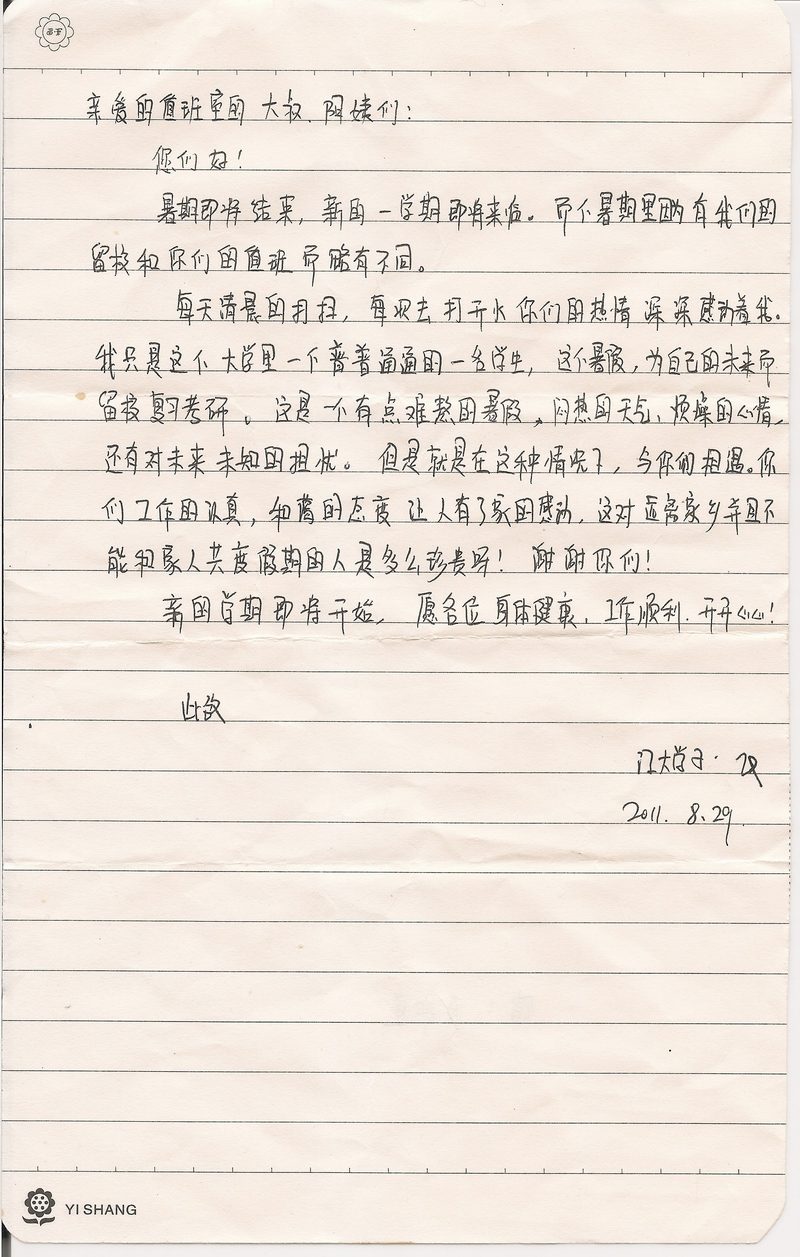 亲爱的值班室的大叔、阿姨们：
您们好！
暑期即将结束，新的一学期即将来临。而个暑期里因为有我们的
留校和你们的值班而略有不同。
每天清晨的打扫，每次去打开水你们的热情深深感动着我。
我只是这个大学里一个普普通通的一名学生，这个暑假，为自己的未来而
留校复习考研。这是一个有点难熬的暑假，闷热的天气、烦燥的心情，
还有对未来未知的担忧。但是就是在这种情况下，与你们相遇。你
们工作的认真，和蔼的态度让人有了家的感动，这对远离家乡并且不
能和家人共度假期的人是多么珍贵呀！谢谢你们！
新的学期即将开始，愿各位身体健康、工作顺利、开开心心！
此致
江大学子·
2011.8.29
YI SHANG